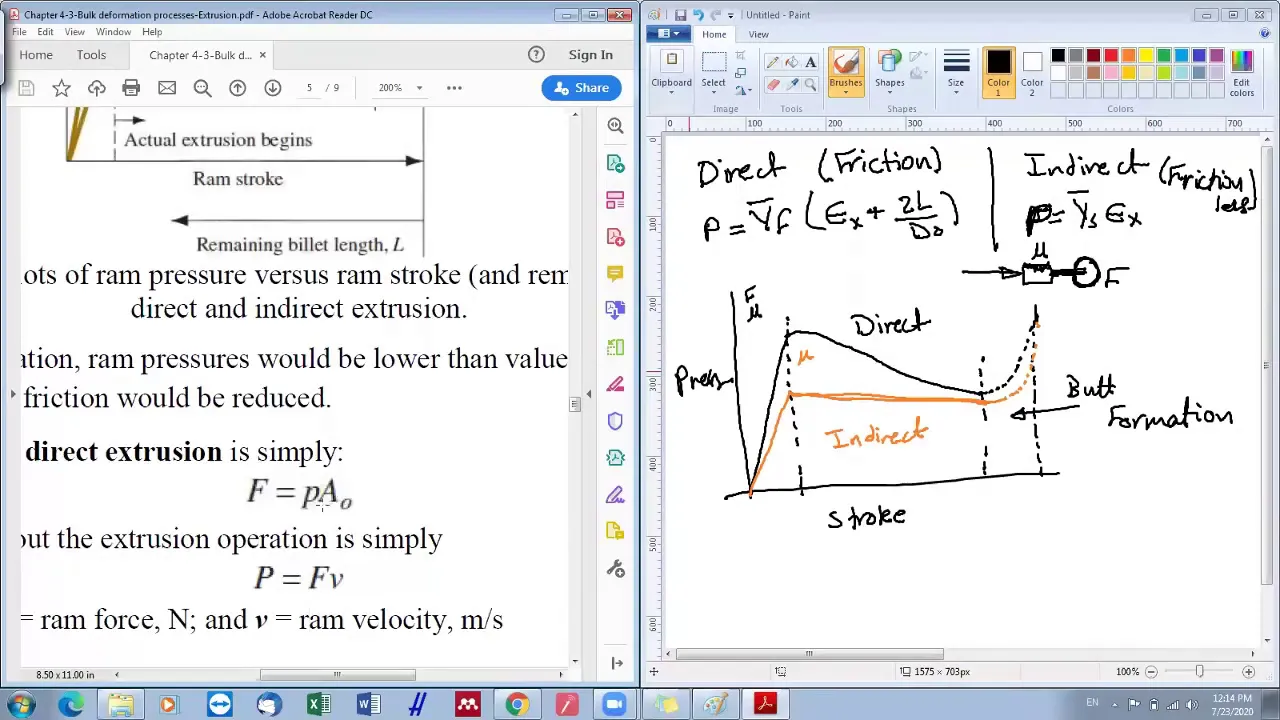 Chapter 4-3-Bulk deformation processes-Extrusion.pdf - Adobe Acrobat Reader DC
File Edit View Window Help
Home Tools Chapter 4-3-Bulk d... × Sign In
5 / 9 200% Share
Actual extrusion begins
Ram stroke
Remaining billet length, L
lots of ram pressure versus ram stroke (and rem
direct and indirect extrusion.
ation, ram pressures would be lower than value
friction would be reduced.
direct extrusion is simply:
F = pAo
out the extrusion operation is simply
P = Fv
= ram force, N; and v = ram velocity, m/s
8.50 x 11.00 in
Untitled - Paint
Home View
Clipboard Select Brushes Shapes Size Color 1 Color 2 Edit colors
Image Tools Shapes Colors
0 100 200 300 400 500 600 700
0
100
200
300
400
500
600
Direct (Friction)
P = Ȳf (Ex + 2L/Do)
Indirect (Friction less)
P = Ȳs Ex
μ
F
F
μ
Press
Direct
μ
Indirect
Butt
Formation
Stroke
1575 × 703px 100%
EN 12:14 PM
7/23/2020